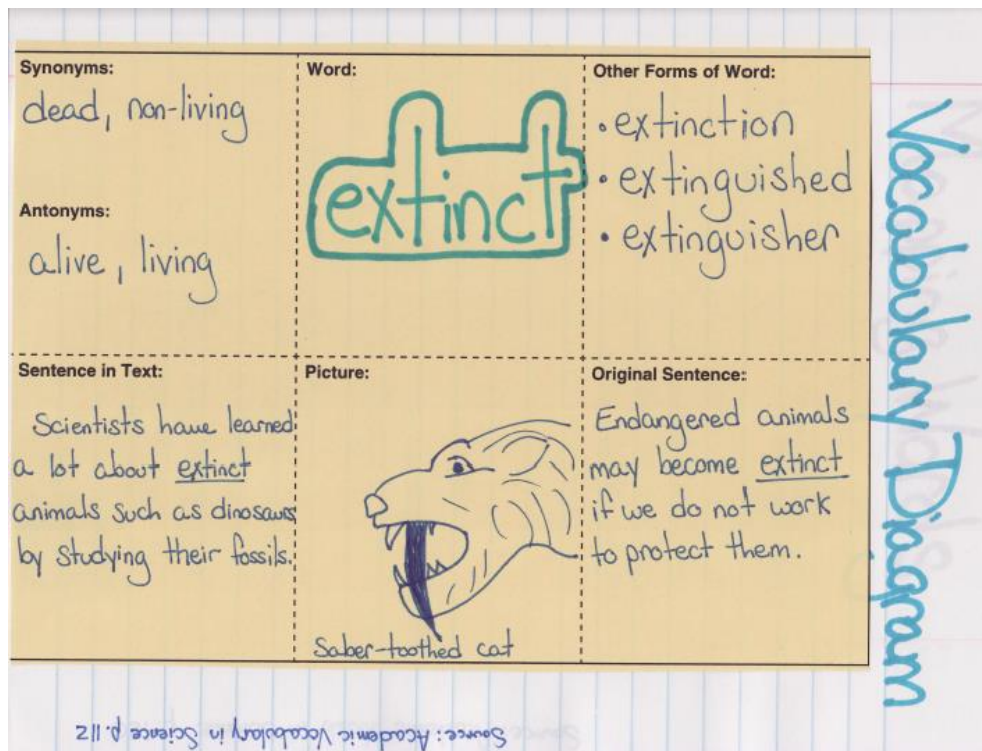 Synonyms:
dead, non-living
Antonyms:
alive, living
Word:
extinct
Other Forms of Word:
• extinction
• extinguished
• extinguisher
Sentence in Text:
Scientists have learned
a lot about extinct
animals such as dinosaurs
by studying their fossils.
Picture:
Saber-toothed cat
Original Sentence:
Endangered animals
may become extinct
if we do not work
to protect them.
Vocabulary Diagram
Source: Academic Vocabulary in Science p. 112